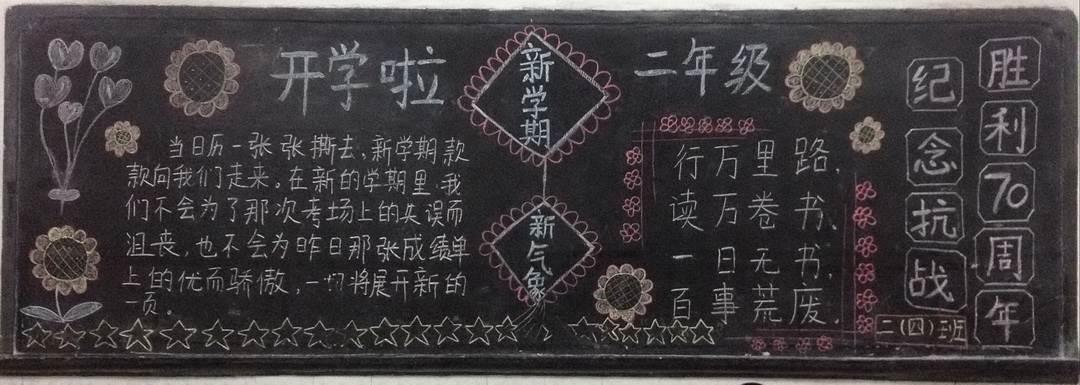 开学啦
当日历一张张撕去,新学期款
款向我们走来。在新的学期里,我
们不会为了那次考场上的失误而
沮丧,也不会为昨日那张成绩单
上的优而骄傲,一切将展开新的
一页。
新学期
新气象
二年级
行万里路、
读万卷书、
一日无书、
百事荒废.
纪念抗战
胜利70周年
二(四)班